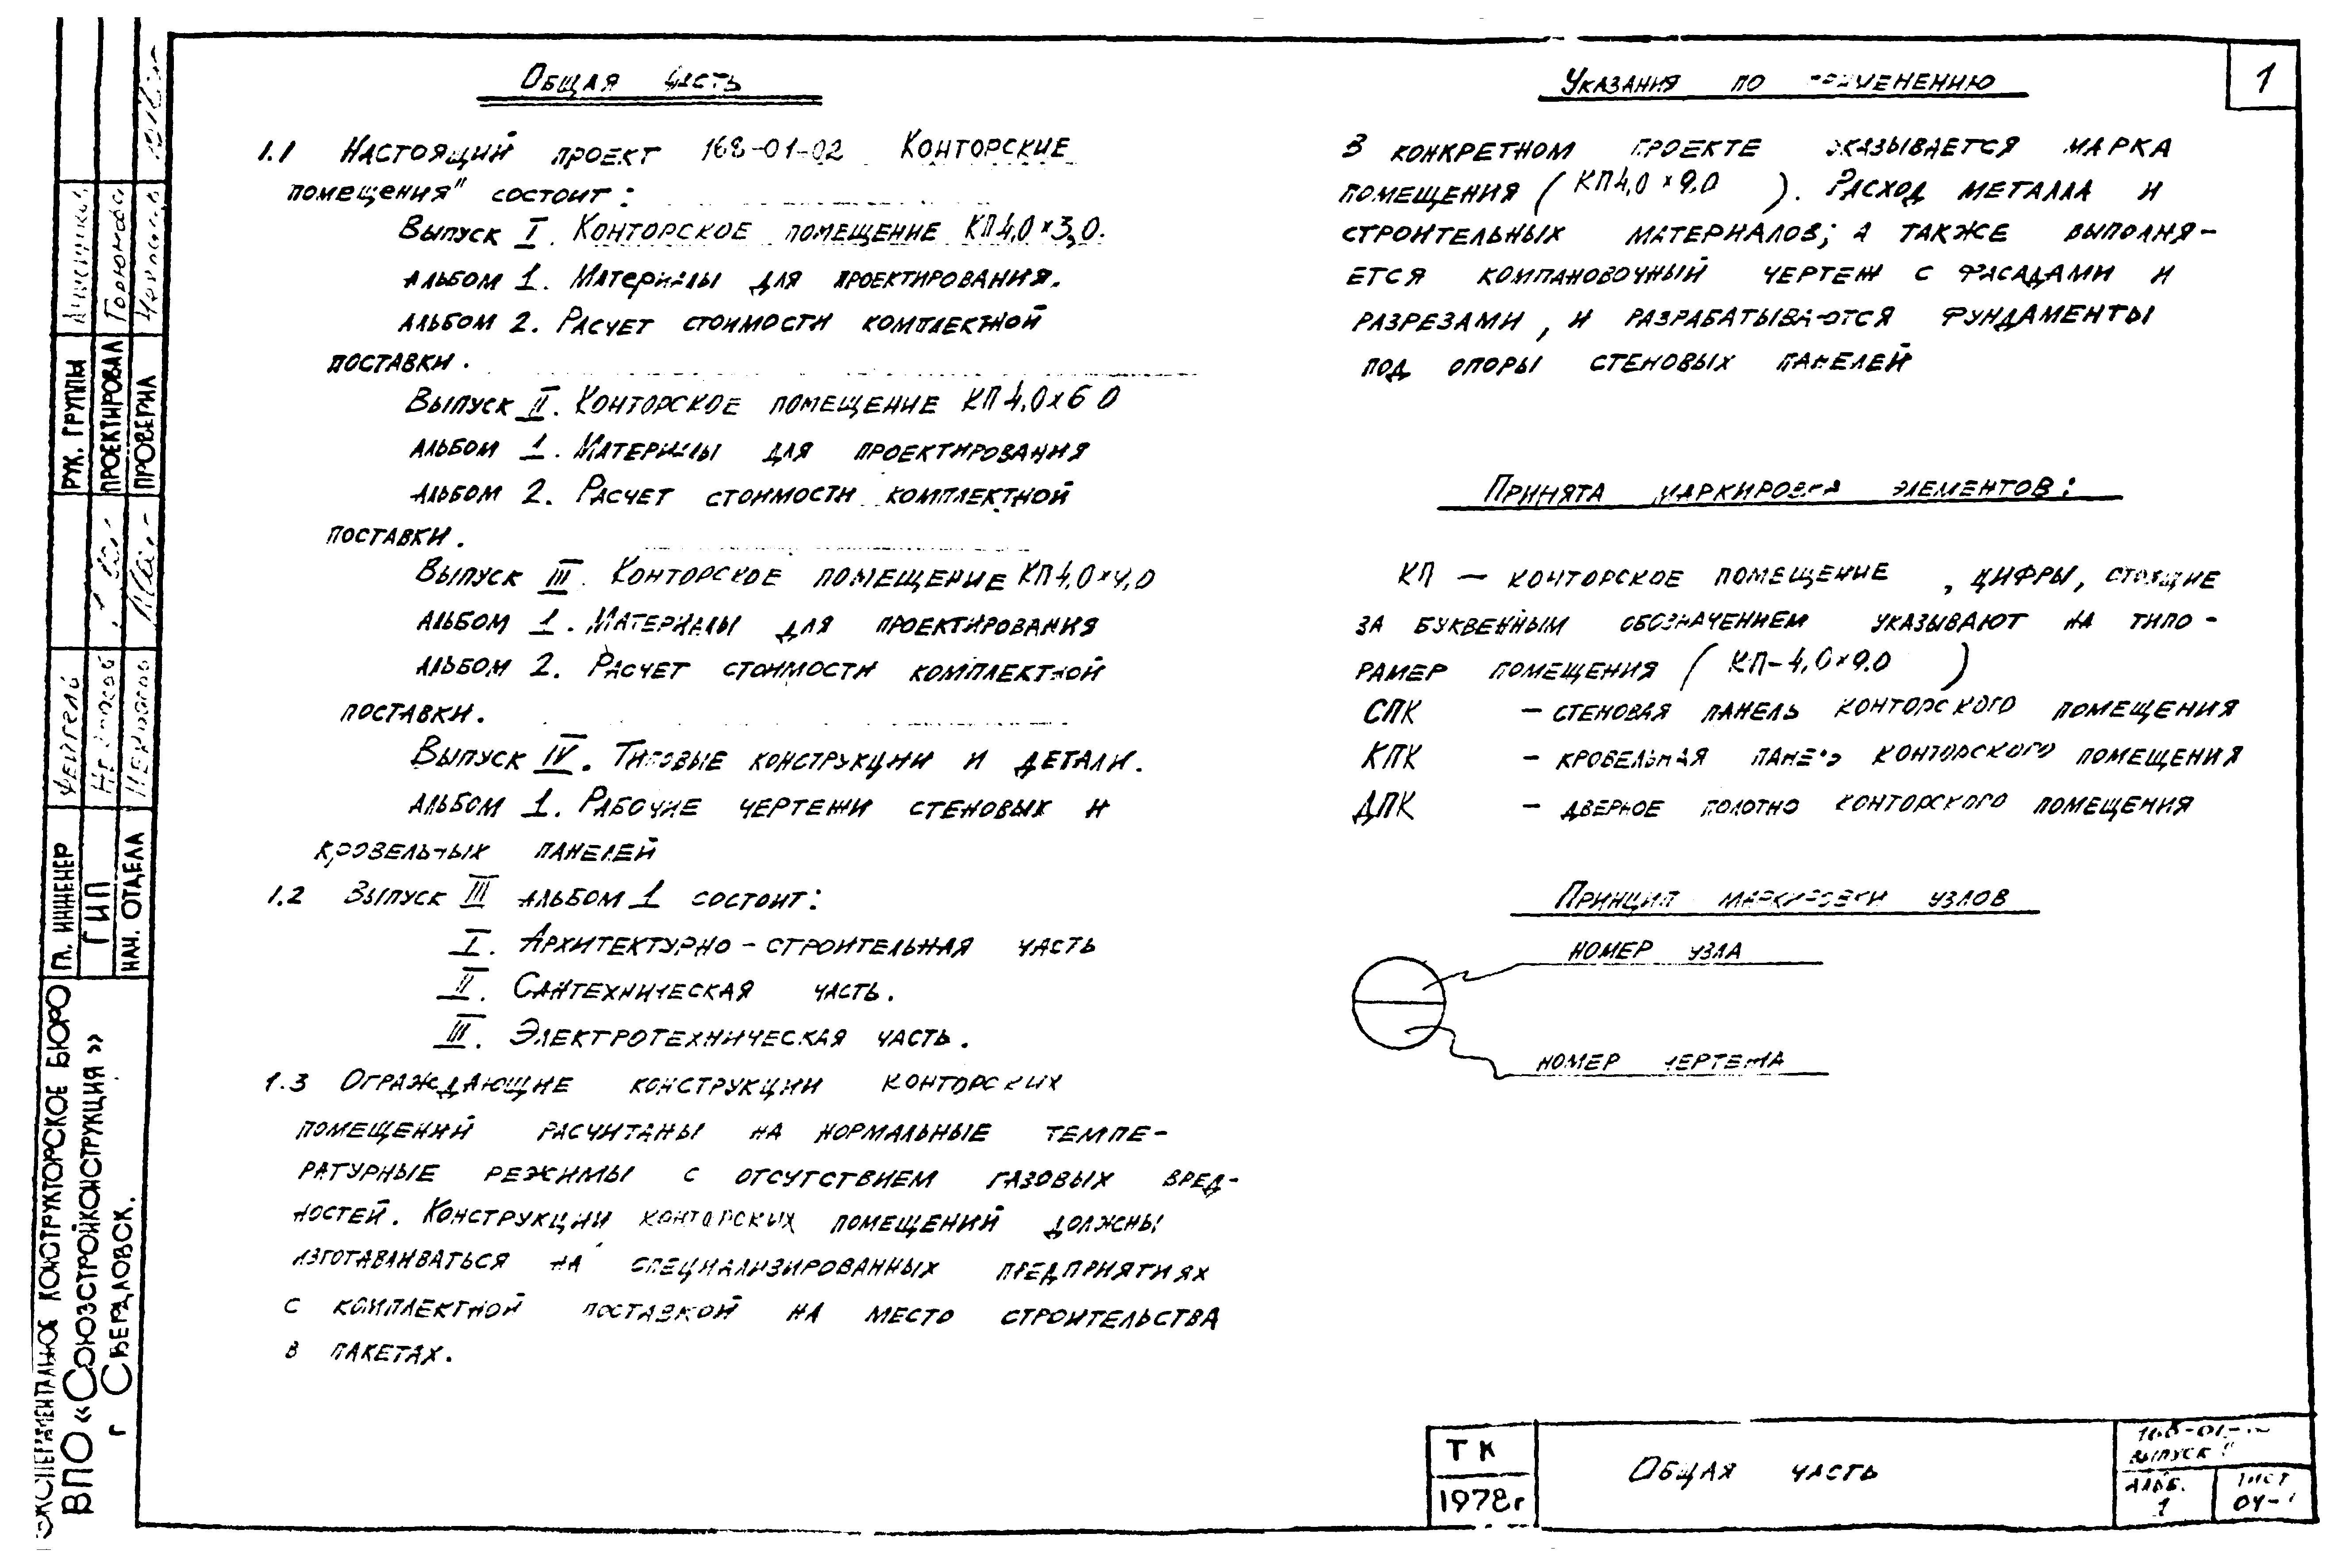 1
Общая часть
1.1 Настоящий проект 168-01-02 Конторские
помещения" состоит:
Выпуск I. Конторское помещение КП4,0×3,0.
альбом 1. Материалы для проектирования.
альбом 2. Расчет стоимости комплектной
поставки.
Выпуск II. Конторское помещение КП4,0×6 0
альбом 1. Материалы для проектирования
альбом 2. Расчет стоимости комплектной
поставки.
Выпуск III. Конторское помещение КП4,0×9,0
альбом 1. Материалы для проектирования
альбом 2. Расчет стоимости комплектной
поставки.
Выпуск IV. Типовые конструкции и детали.
альбом 1. Рабочие чертежи стеновых и
кровельных панелей
1.2 Выпуск III альбом 1 состоит:
I. Архитектурно-строительная часть
II. Сантехническая часть.
III. Электротехническая часть.
1.3 Ограждающие конструкции конторских
помещений расчитаны на нормальные темпе-
ратурные режимы с отсутствием газовых вред-
ностей. Конструкции конторских помещений должны
изготавливаться на специализированных предприятиях
с комплектной поставкой на место строительства
в пакетах.
Указания по применению
В конкретном проекте указывается марка
помещения (КП4,0×9.0). Расход металла и
строительных материалов; а также выполня-
ется компановочный чертеж с фасадами и
разрезами, и разрабатываются фундаменты
под опоры стеновых панелей
Принята маркировка элементов:
КП — конторское помещение, цифры, стоящие
за буквенным обозначением указывают на типо-
рамер помещения (КП-4,0×9.0)
СПК – стеновая панель конторского помещения
КПК – кровельная панель конторского помещения
ДПК – дверное полотно конторского помещения
Принцип маркировки узлов
номер узла
номер чертежа
ТК
1978г
Общая часть
выпуск
Альб.
1
лист
Рук. группы
Проектировал Горюнова
Проверил
Гл. инженер
ГИП
Нач. отдела
Экспериментальное конструкторское бюро
ВПО «Союзстройконструкция»
г Свердловск.